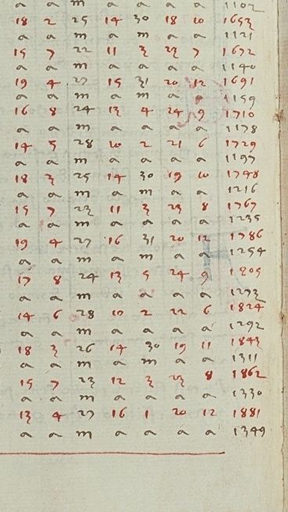 a a m a a a a 1102
18 2 25 14 30 18 10 1653
a a m a m a a 1121
15 7 22 11 3 23 7 1672
a a m a a a a 1140
19 4 27 15 31 20 12 1691
a a m a m a a 1159
16 8 24 13 4 24 9 1710
a a m a a a a 1178
14 5 28 10 2 21 6 1729
a a m a a a a 1197
18 3 25 14 30 19 10 1748
a a m a m a a 1216
15 7 23 11 3 23 8 1767
a a m a a a a 1235
19 4 27 16 31 20 12 1786
a a m a m a a 1254
17 8 24 13 5 24 9 1805
a a m a a a a 1273
14 6 28 10 2 22 6 1824
a a m a a a a 1292
18 3 26 14 30 19 11 1843
a a m a m a a 1311
15 7 23 12 3 23 8 1862
a a m a a a a 1330
13 4 27 16 1 20 12 1881
a a m a a a a 1349